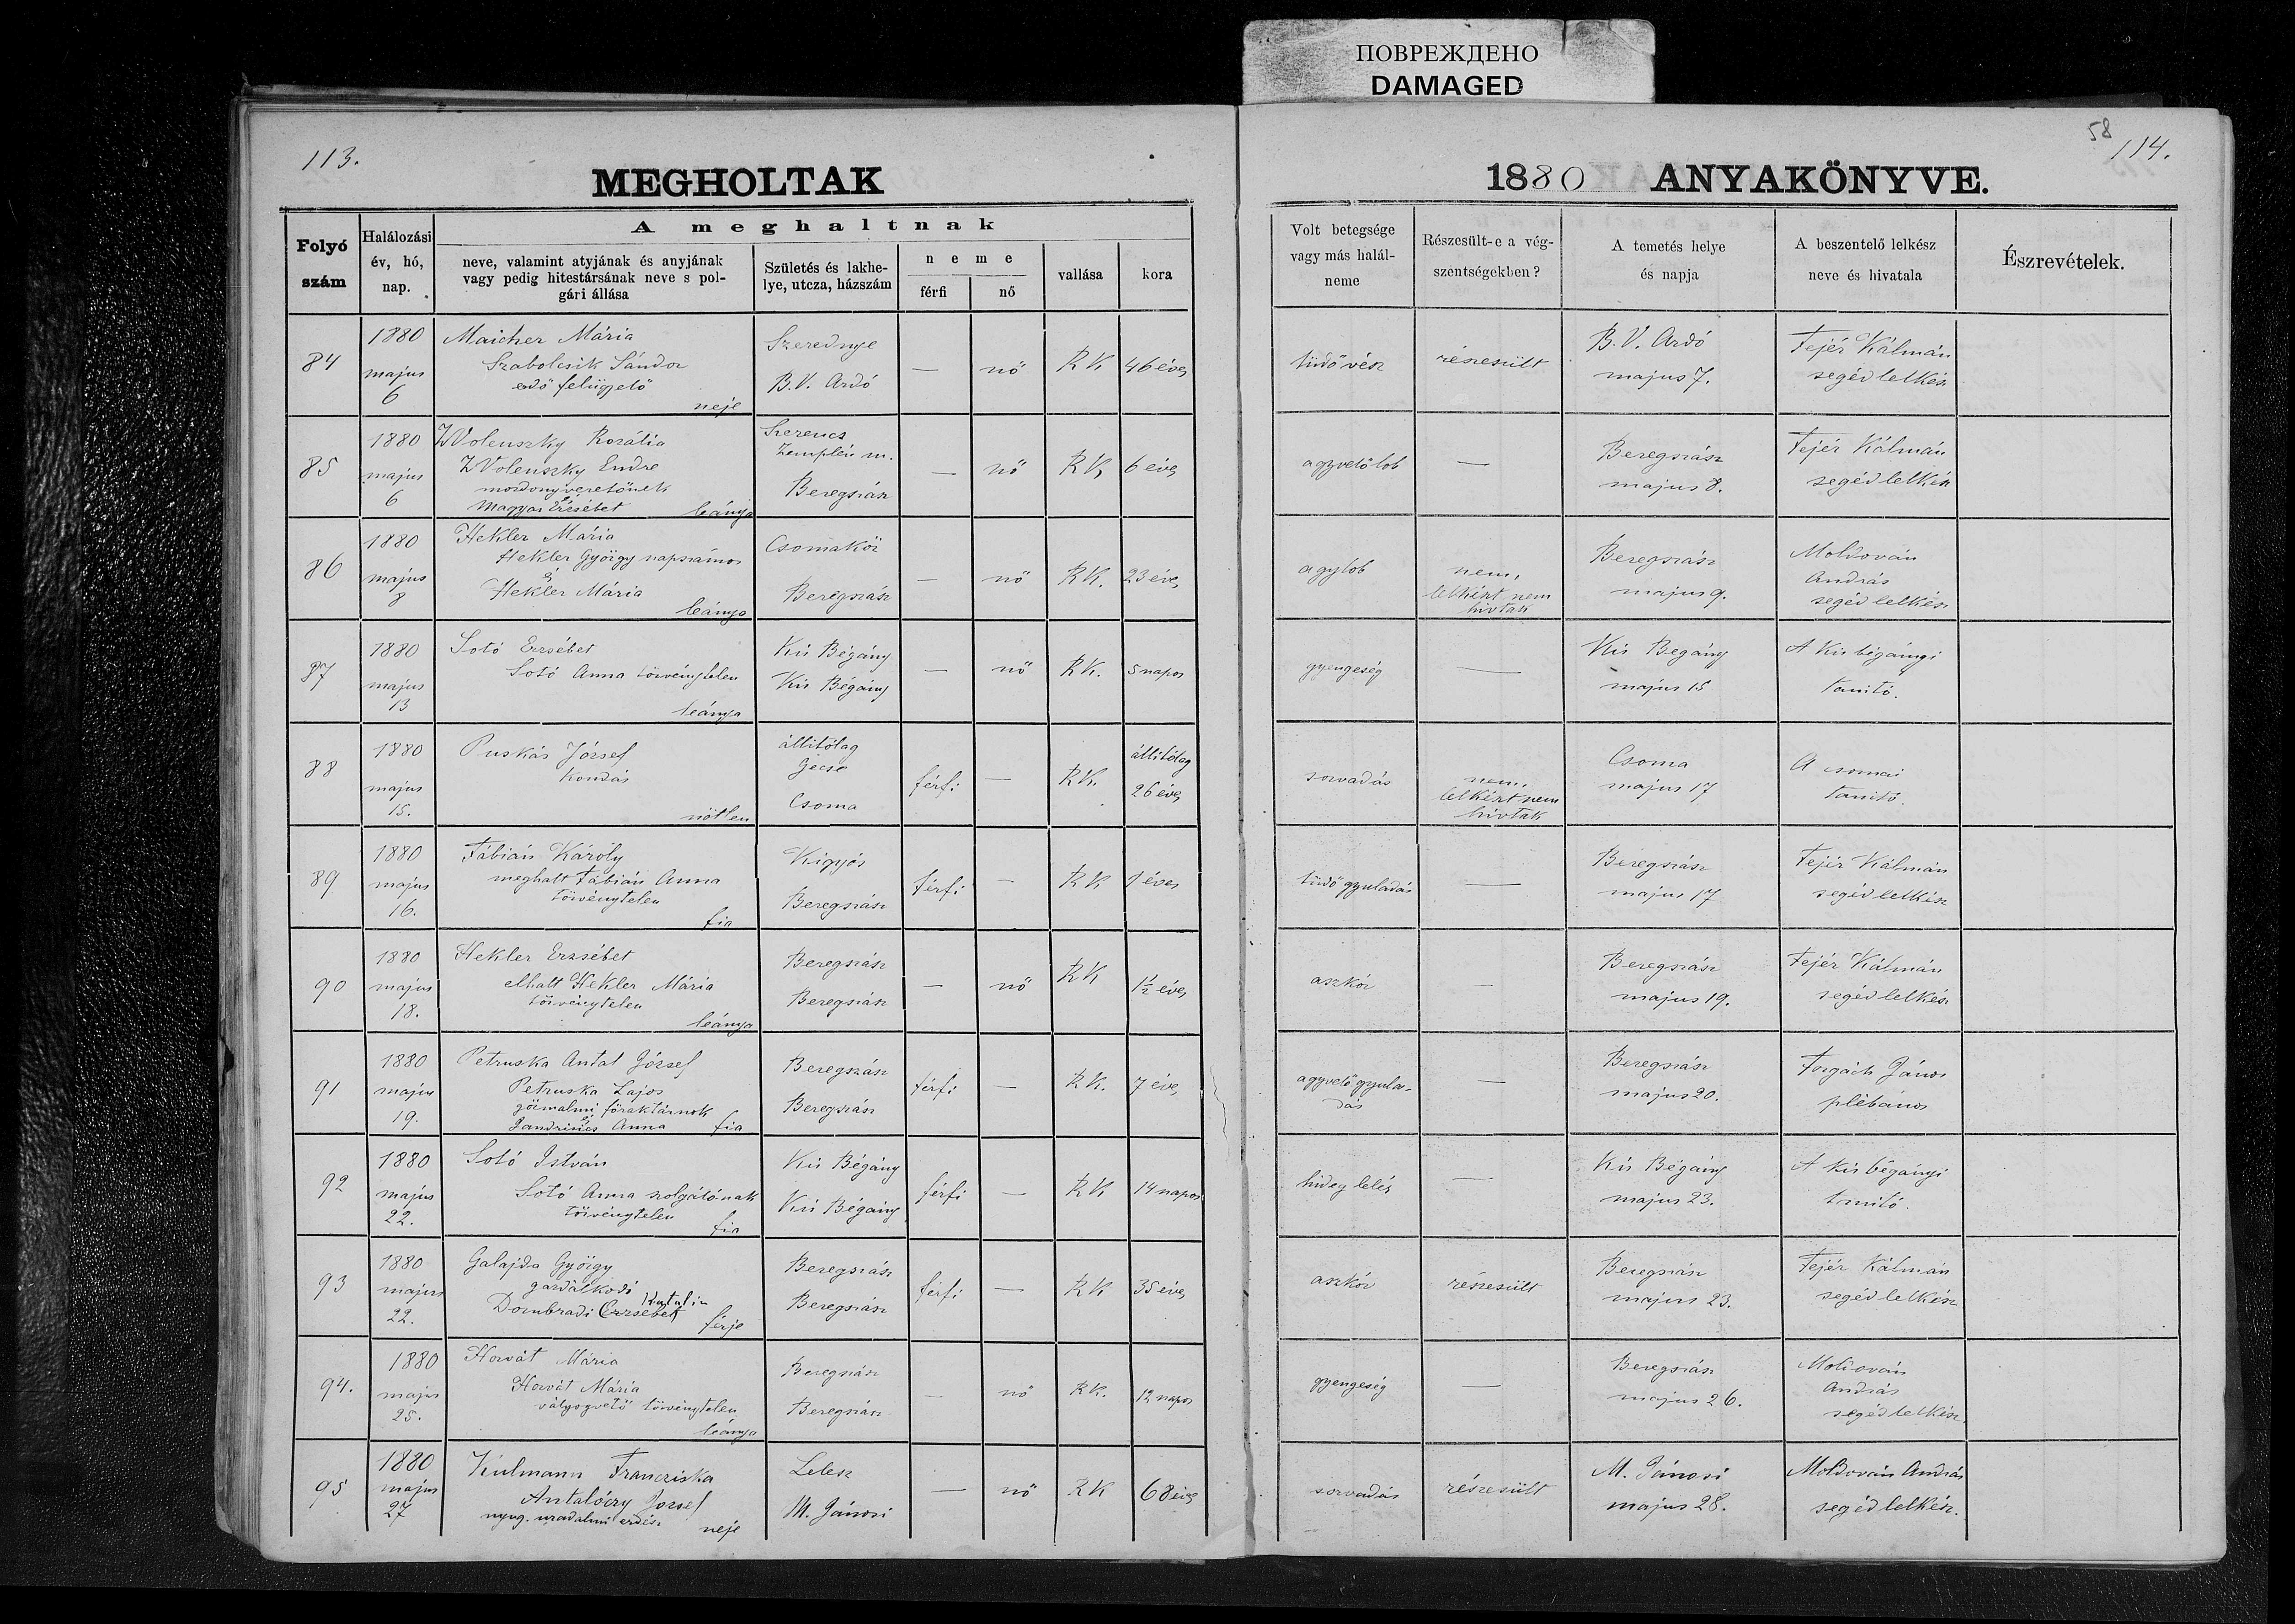 ПОВРЕЖДЕНО
DAMAGED
113.
MEGHOLTAK
Folyó szám
Halálozási év, hó, nap.
A meghaltnak
neve, valamint atyjának és anyjának vagy pedig hitestársának neve s polgári állása
Születés és lakhelye, utcza, házszám
neme
férfi
nő
vallása
kora
58
114.
1880 ANYAKÖNYVE.
Volt betegsége vagy más halálneme
Részesült-e a végszentségekben?
A temetés helye és napja
A beszentelő lelkész neve és hivatala
Észrevételek.
84
1880 majus 6
Maicher Mária
Szabolcsik Sándor
erdő felügyelő
neje
Szerednye
B.V. Ardó
—
nő
RK
46 éves
tüdővész
részesült
B.V. Ardó
majus 7.
Fejér Kálmán
segédlelkész
85
1880 majus 6
ZVolenszky Rozália
ZVolenszky Endre
mozdonyvezetőnek
Magyar Erzsébet leánya
Szerencs
Zemplén m.
Beregszász
—
nő
RK
6 éves
agyvelőlob
—
Beregszász
majus 8.
Fejér Kálmán
segédlelkész
86
1880 majus 8
Hekler Mária
Hekler György napszámos
és
Hekler Mária
leánya
Csomaköz
Beregszász
—
nő
RK.
23 éves
agylob
nem,
lelkészt nem
hivtak
Beregszász
majus 9.
Moldován
András
segédlelkész
87
1880 majus 13
Sotó Erzsébet
Sotó Anna törvénytelen
leánya
Kis Bégány
Kis Bégány
—
nő
RK.
5 napos
gyengeség
—
Kis Begány
május 15
A Kis bégányi
tanító.
88
1880 majus 15.
Puskás József
Kondás
nőtlen
állitólag
Gecse
Csoma
férfi
—
RK.
állitólag
26 éves
sorvadás
nem,
lelkészt nem
hivtak
Csoma
majus 17
A csomai
tanitó.
89
1880 majus 16.
Fábián Károly
meghalt Fábián Anna
törvénytelen
fia
Kigyós
Beregszász
férfi
—
RK
1 éves
tüdőgyuladás
—
Beregszász
majus 17
Fejér Kálmán
segédlelkész
90
1880 majus 18.
Hekler Erzsébet
elhalt Hekler Mária
törvénytelen
leánya
Beregszász
Beregszász
—
nő
RK
1½ éves
aszkór
—
Beregszász
majus 19.
Fejér Kálmán
segédlelkész
91
1880 majus 19.
Petruska Antal József
Petruska Lajos
gőzmalmi főraktárnok
és
Anna fia
Beregszász
Beregszász
férfi
—
RK.
7 éves
agyvelőgyula-
dás
—
Beregszász
majus 20.
Forgách János
plébános
92
1880 május 22.
Sotó István
Sotó Anna szolgálónak
törvénytelen
fia
Kis Bégány
Kis Bégány
férfi
—
RK
14 napos
hideg lelés
—
Kis Bégány
majus 23.
A kis bégányi
tanító.
93
1880 majus 22.
Galajda György
gazdálkodó
Katalin
Dombradi Erzsébet
férje
Beregszász
Beregszász
férfi
—
RK
35 éves
aszkór
részesült
Beregszász
majus 23.
Fejér Kálmán
segédlelkész
94.
1880 majus 25.
Horvát Mária
Horvát Mária
vályogvető törvénytelen
leánya
Beregszász
Beregszász
—
nő
RK.
12 napos
gyengeség
—
Beregszász
majus 26.
Moldován
András
segédlelkész.
95
1880 majus 27
Kulmann Francziska
Antalóczy József
nyug. uradalmi erdész
neje
Lelesz
M. Jánosi
—
nő
RK
68 éves
sorvadás
részesült
M. Jánosi
majus 28.
Moldován András
segédlelkész.